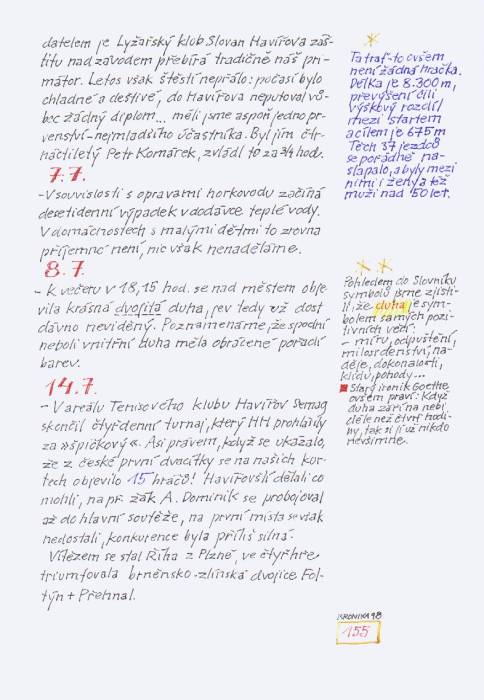 datelem je Lyžařský klub Slovan Havířova záš-
titu nad závodem přebírá tradičně náš pri-
mátor. Letos však štěstí nepřálo: počasí bylo
chladné a deštivé, do Havířova neputoval vů-
bec žádný diplom... měli jsme aspoň jedno pr-
venství-nejmladšího účastníka. Byl jím čtr-
náctiletý Petr Komárek, zvládl to za 3/4 hod.
7.7.
-V souvislosti s opravami horkovodu začíná
desetidenní výpadek v dodávce teplé vody.
V domácnostech s malými dětmi to zrovna
příjemné není, nic však nenaděláme.
8.7.
- k večeru v 18,15 hod. se nad městem obje-
vila krásná dvojitá duha, jev tedy už dost
dávno neviděný. Poznamenáme, že spodní
neboli vnitřní duha měla obrácené pořadí
barev.
14.7.
- V areálu Tenisového klubu Havířov Semag
skončil čtyřdenní turnaj, který HH prohlásily
za »špičkový«. Asi právem, když se ukázalo,
že z české první dvacítky se na našich kur-
tech objevilo 15 hráčů! Havířovští dělali co
mohli, např. žák A. Dominik se probojoval
až do hlavní soutěže, na první místa se však
nedostali, konkurence byla příliš silná.
Vítězem se stal Říha z Plzně, ve čtyřhře
triumfovala brněnsko-zlínská dvojice Fol-
týn + Přehnal.
Ta trať-to ovšem
není žádná hračka.
Délka je 8.300 m,
převýšení čili
výškový rozdíl
mezi startem
a cílem je 675 m
Těch 37 jezdců
se pořádně na-
šlapalo, a byly mezi
nimi i ženy a též
muži nad 50 let.
Pohledem do Slovníku
symbolů jsme zjisti-
li, že duha je sym-
bolem samých pozi-
tivních věcí:
- míru, odpuštění,
milosrdenství, na-
děje, dokonalosti,
klidu, pohody...
Starý ironik Goethe
ovšem praví: Když
duha září na nebi
déle než čtvrt hodi-
ny, tak si jí už nikdo
nevšimne.
KRONIKA 98
155